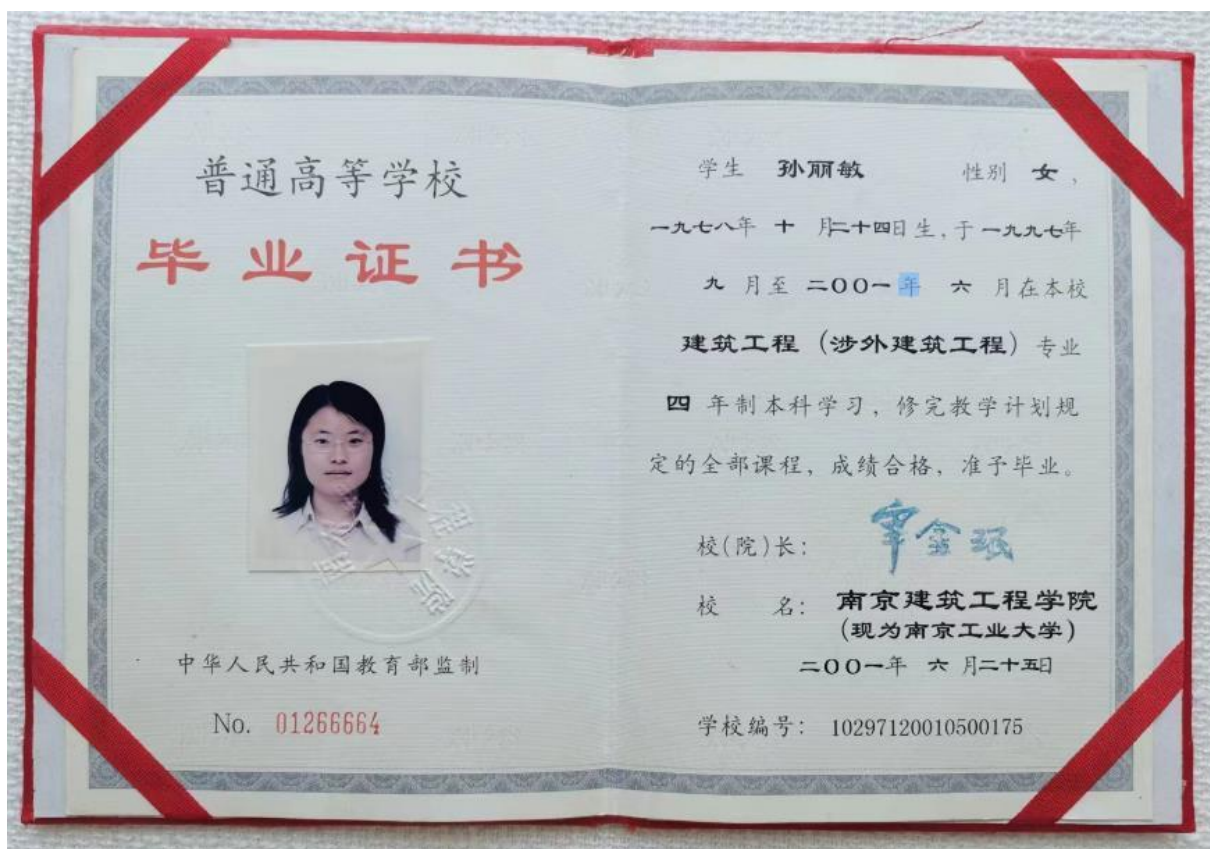 普通高等学校
毕业证书
中华人民共和国教育部监制
No. 01266664
学生 孙丽敏 性别 女,
一九七八年 十 月二十四日生,于一九九七年
九 月至 二〇〇一年 六 月在本校
建筑工程（涉外建筑工程）专业
四 年制本科学习，修完教学计划规
定的全部课程，成绩合格，准予毕业。
校(院)长：
校 名：南京建筑工程学院
(现为南京工业大学)
二〇〇一年 六 月二十五日
学校编号：10297120010500175